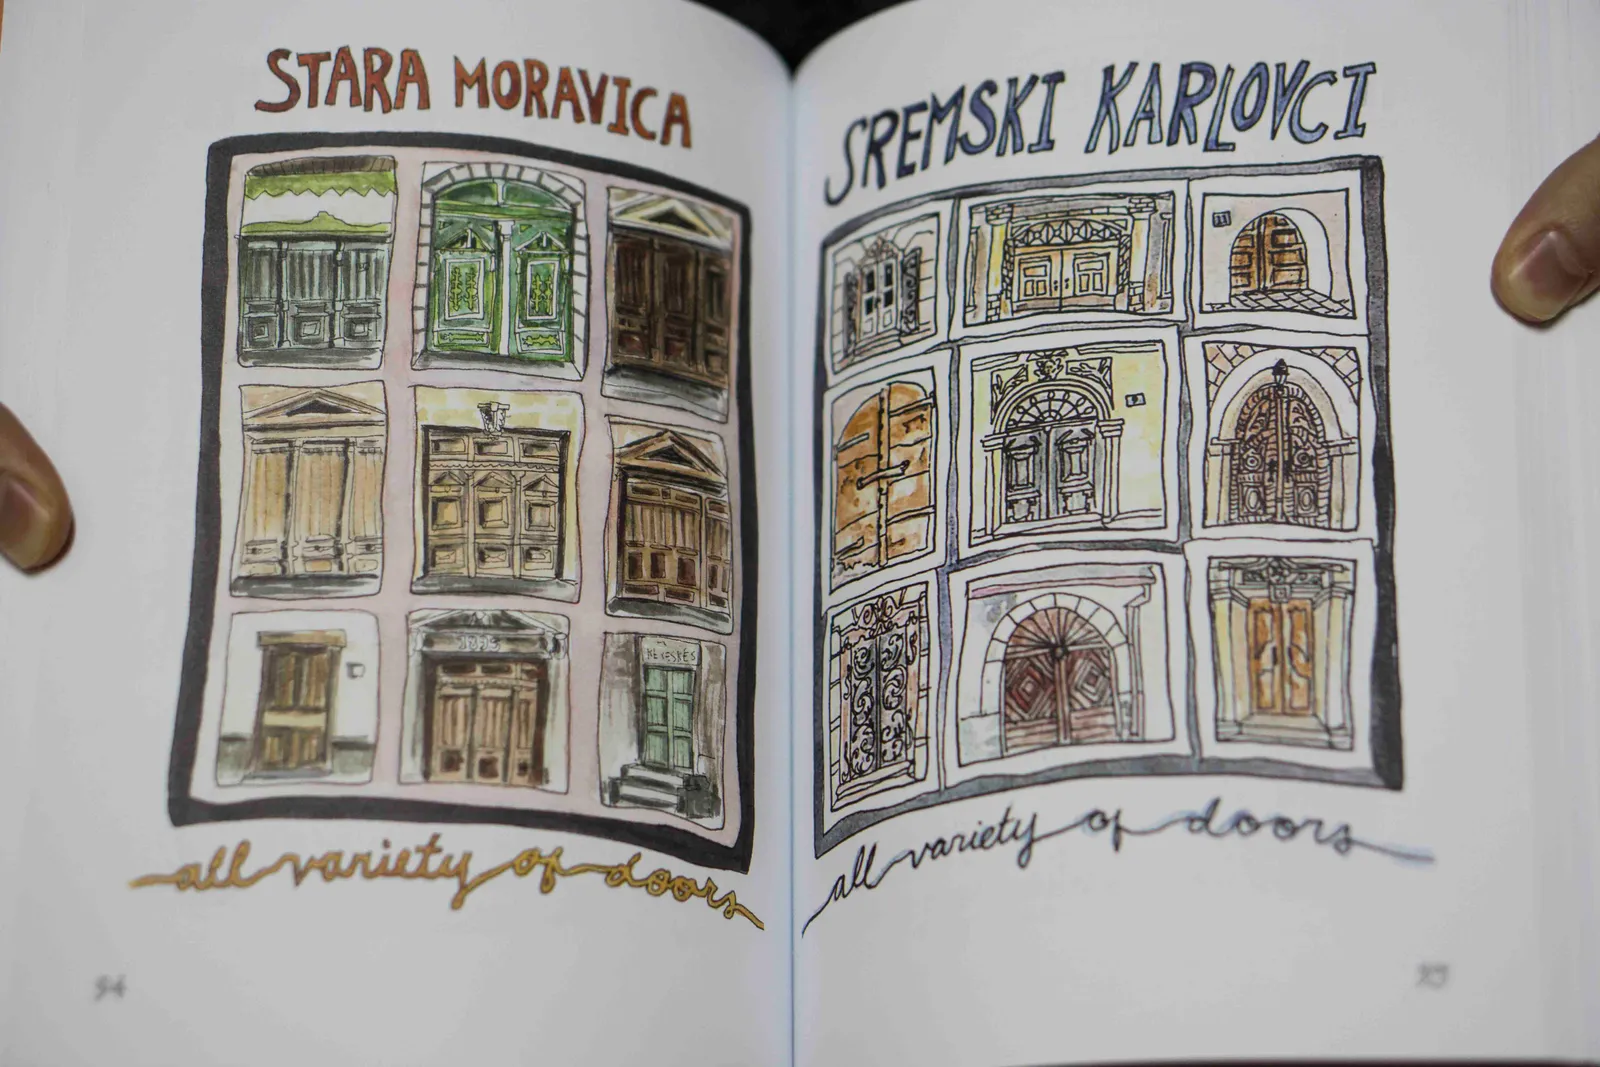 STARA MORAVICA
1895
KECSKÉS
all variety of doors
94
SREMSKI KARLOVCI
11
9
all variety of doors
95